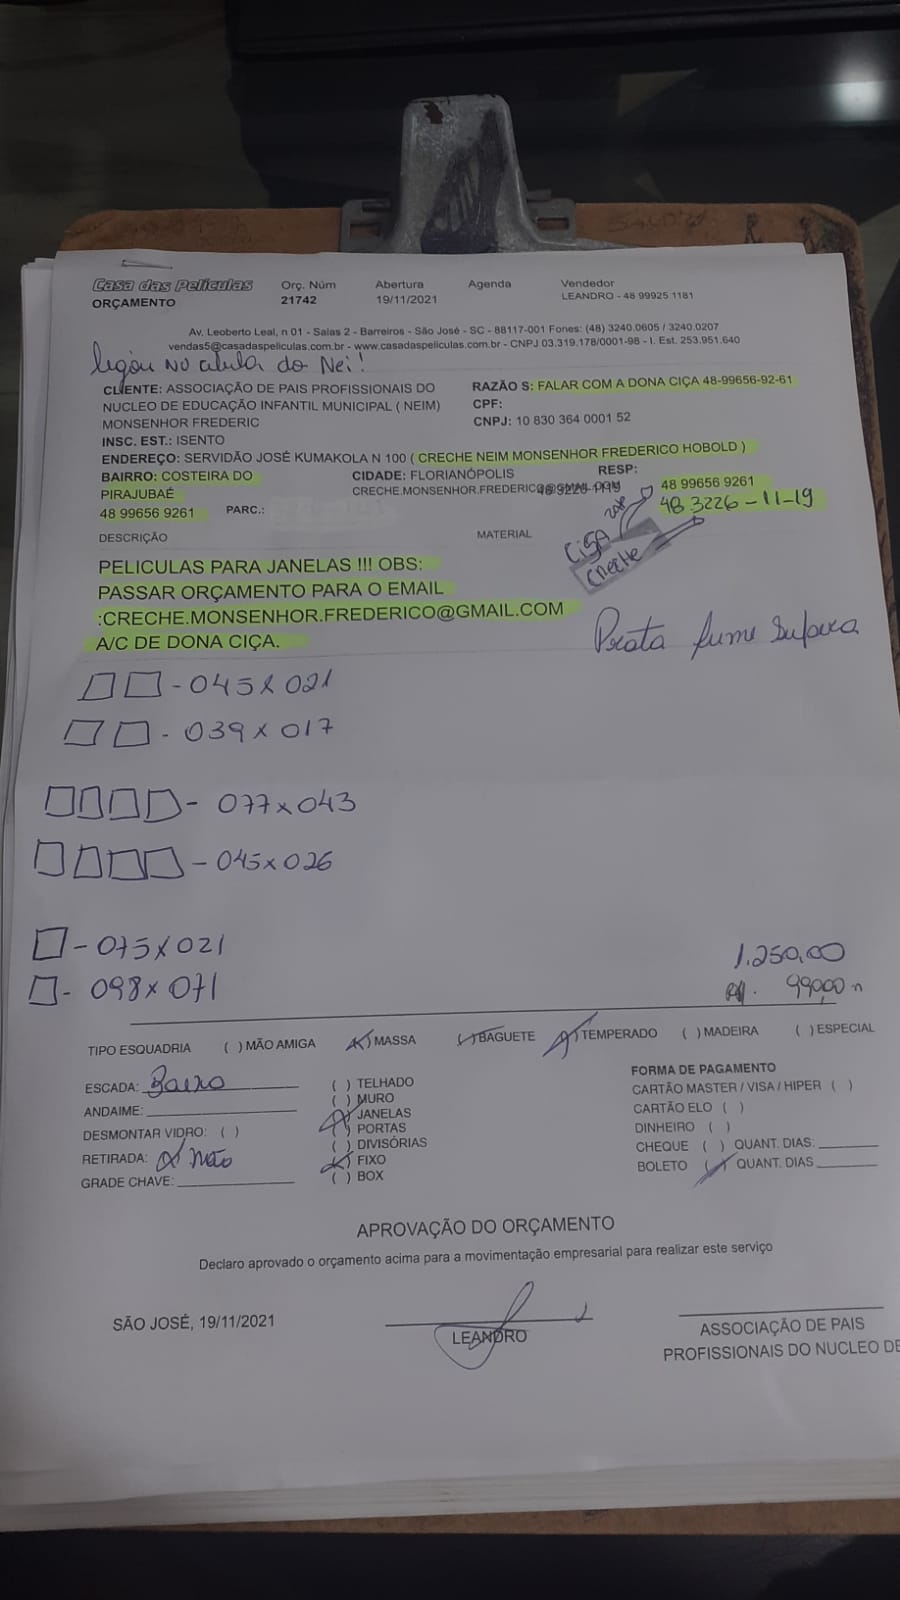 Casa das Películas Orç. Núm Abertura Agenda Vendedor
ORÇAMENTO 21742 19/11/2021 LEANDRO - 48 99925 1181
Av. Leoberto Leal, n 01 - Salas 2 - Barreiros - São José - SC - 88117-001 Fones: (48) 3240.0605 / 3240.0207
vendas5@casadaspeliculas.com.br - www.casadaspeliculas.com.br - CNPJ 03.319.178/0001-98 - I. Est. 253.951.640
ligou no celular do Nei!
CLIENTE: ASSOCIAÇÃO DE PAIS PROFISSIONAIS DO RAZÃO S: FALAR COM A DONA CIÇA 48-99656-92-61
NUCLEO DE EDUCAÇÃO INFANTIL MUNICIPAL ( NEIM) CPF:
MONSENHOR FREDERIC CNPJ: 10 830 364 0001 52
INSC. EST.: ISENTO
ENDEREÇO: SERVIDÃO JOSÉ KUMAKOLA N 100 ( CRECHE NEIM MONSENHOR FREDERICO HOBOLD )
BAIRRO: COSTEIRA DO CIDADE: FLORIANÓPOLIS RESP:
PIRAJUBAÉ CRECHE.MONSENHOR.FREDERICO@GMAIL.COM 48 3226-1119 48 99656 9261
48 99656 9261 PARC.: 48 3226-11-19
Ciça
creche
DESCRIÇÃO MATERIAL
PELICULAS PARA JANELAS !!! OBS:
PASSAR ORÇAMENTO PARA O EMAIL
:CRECHE.MONSENHOR.FREDERICO@GMAIL.COM
A/C DE DONA CIÇA.
Prata fume
- 045x021
- 039x017
- 077x043
- 045x026
- 075x021
- 098x071
1.250,00
990,00
TIPO ESQUADRIA ( ) MÃO AMIGA (X) MASSA ( ) BAGUETE (X) TEMPERADO ( ) MADEIRA ( ) ESPECIAL
ESCADA: Baixo ( ) TELHADO FORMA DE PAGAMENTO
ANDAIME: ( ) MURO CARTÃO MASTER / VISA / HIPER ( )
DESMONTAR VIDRO: ( ) (X) JANELAS CARTÃO ELO ( )
RETIRADA: X não ( ) PORTAS DINHEIRO ( )
GRADE CHAVE: ( ) DIVISÓRIAS CHEQUE ( ) QUANT. DIAS:
(X) FIXO BOLETO (X) QUANT. DIAS
( ) BOX
APROVAÇÃO DO ORÇAMENTO
Declaro aprovado o orçamento acima para a movimentação empresarial para realizar este serviço
SÃO JOSÉ, 19/11/2021
LEANDRO
ASSOCIAÇÃO DE PAIS
PROFISSIONAIS DO NUCLEO DE